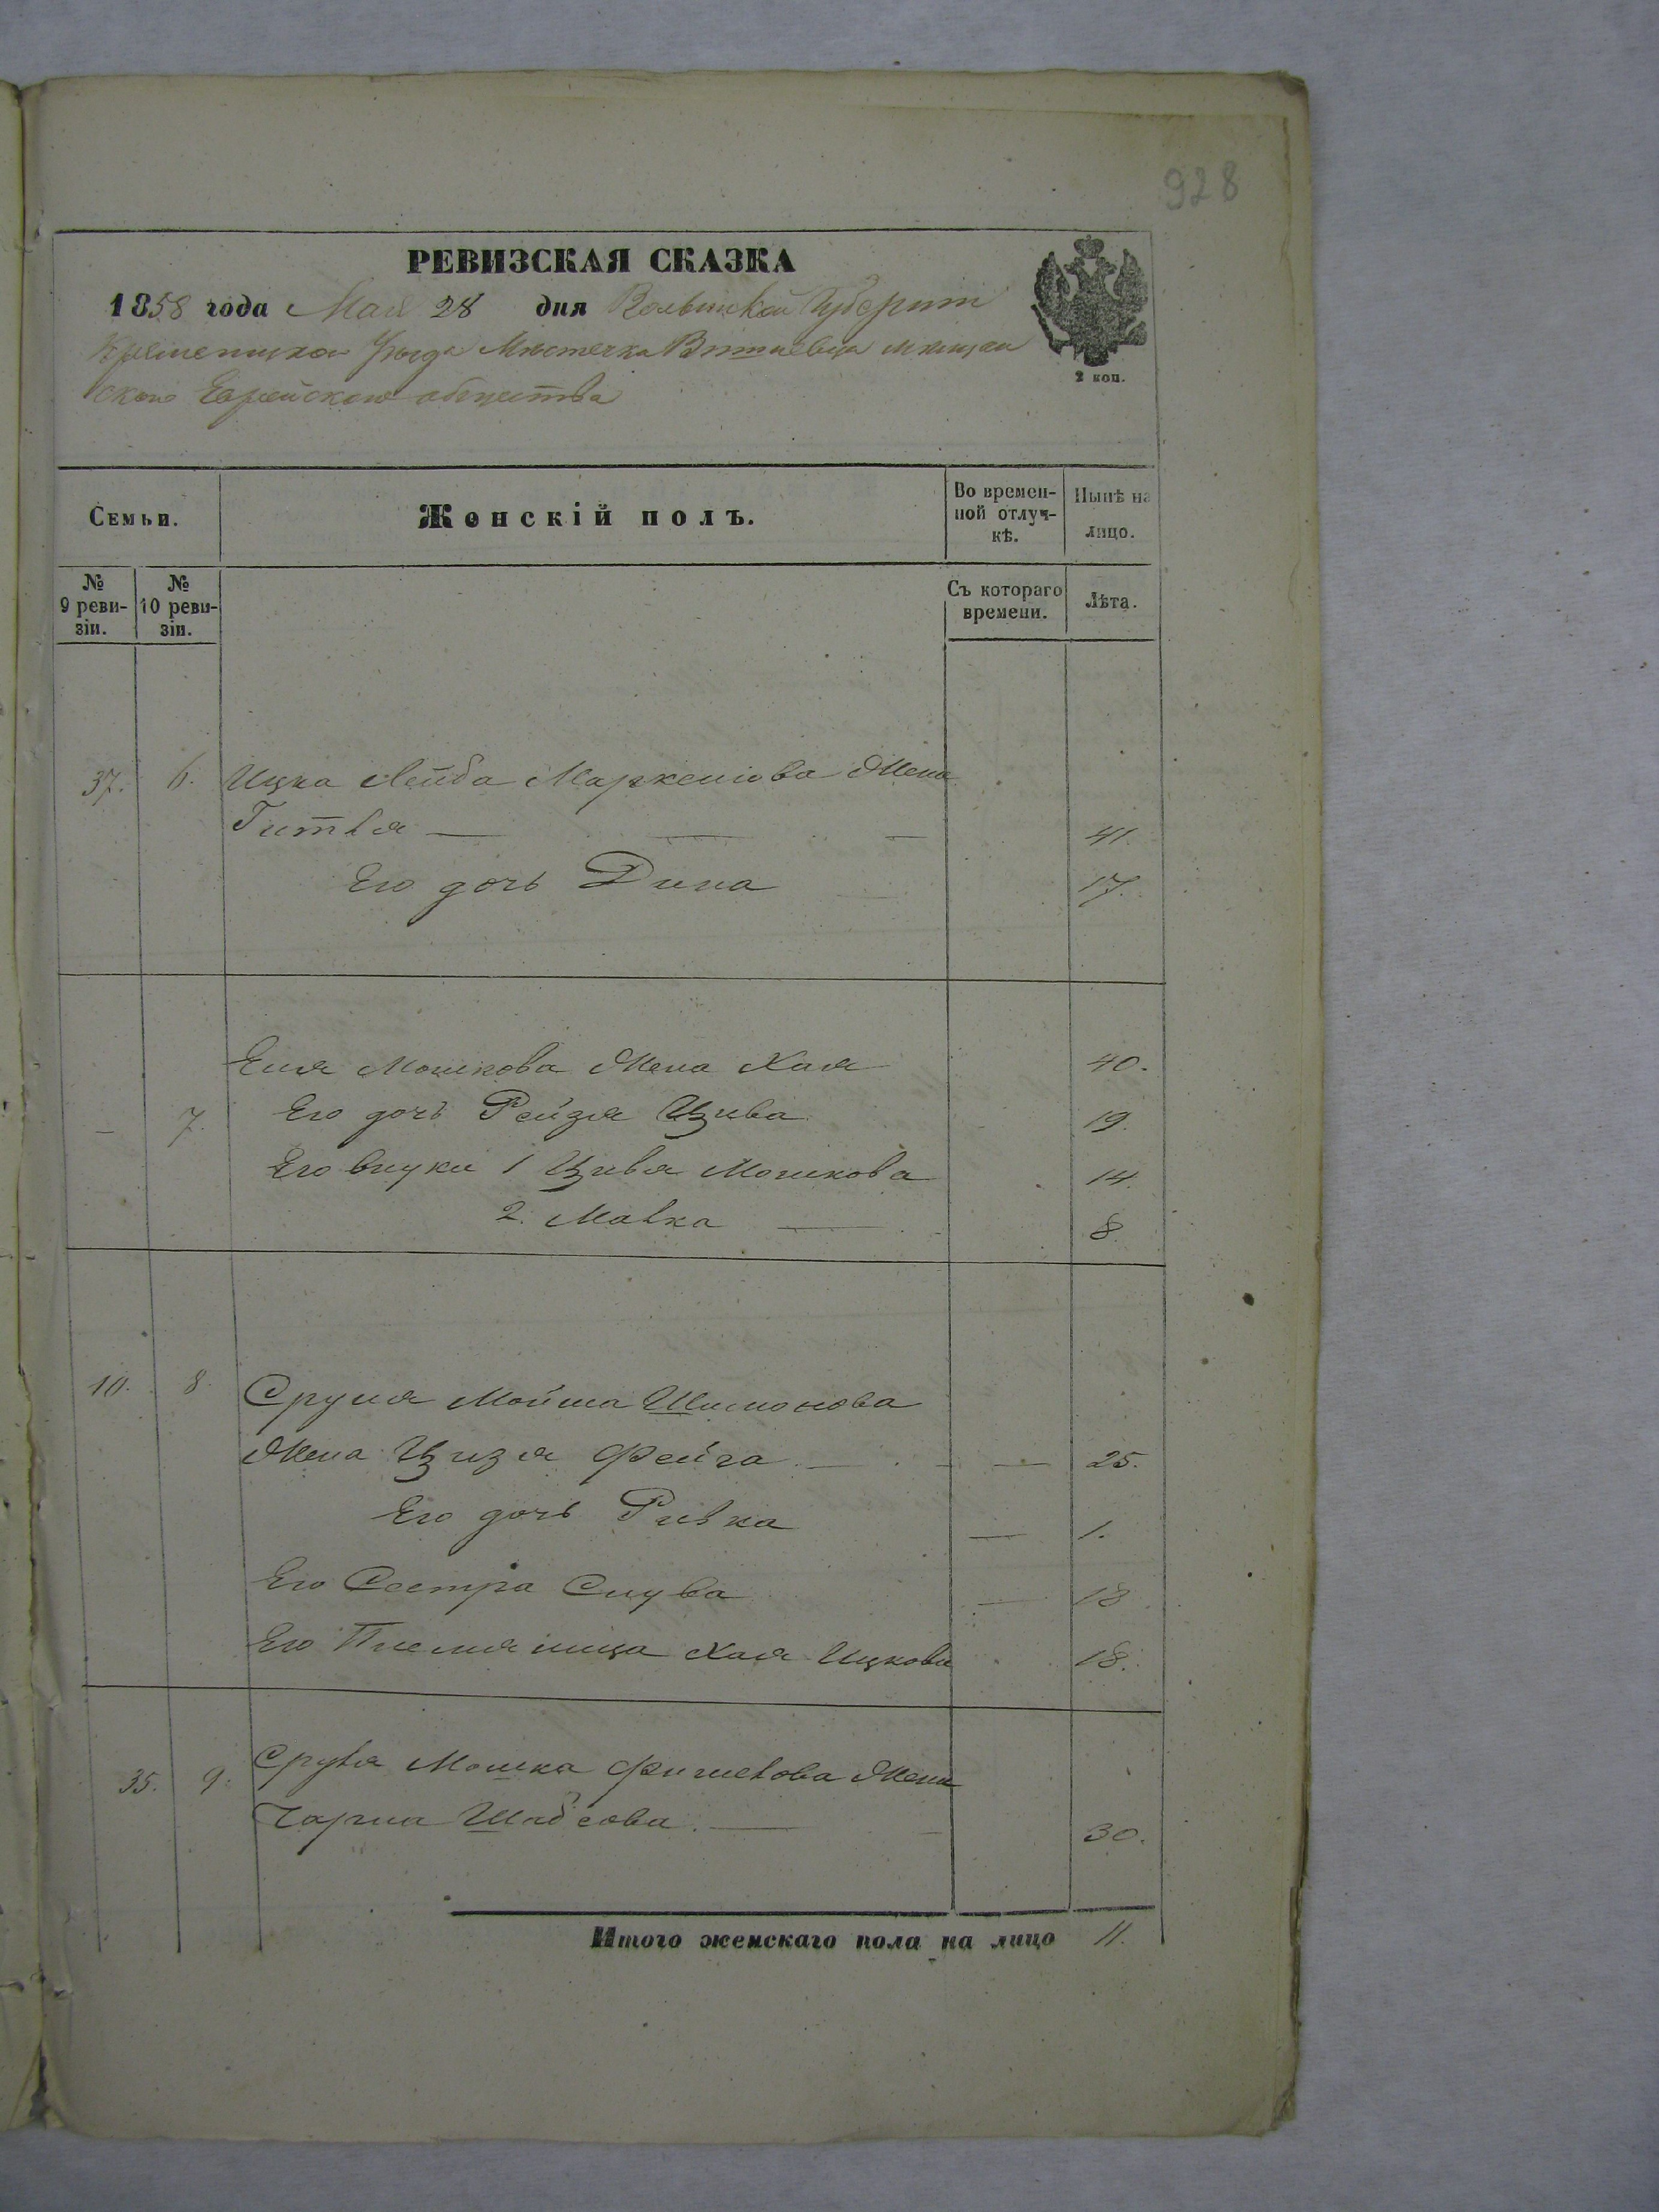 928
РЕВИЗСКАЯ СКАЗКА
1858 года Мая 28 дня Волынской Губернии
Кременецкаго Уезда Местечка мещан
скаго Еврейскаго общества
2 коп.
Семьи.
Женскій полъ.
Во времен-
ной отлуч-
кѣ.
Нынѣ на
лицо.
№
9 реви-
зіи.
№
10 реви-
зіи.
Съ котораго
времени.
Лѣта.
37. 6. Ицка Лейба Жена
41.
Его дочь Дина 17.
Мошкова Жена Хая 40.
7. Его дочь Рейзя Цива 19.
Его внуки 1 Цивя Мошкова 14.
2. Малка 8.
10. 8. Сруля Мойша Шимонова
Жена Цизя Фейга 25.
Его дочь Ривка 1.
Его Сестра 18
Его Племяница Хая Ицкова 18.
35. 9. Сруля Мошка Фишелова Жена
Чарна Шабсова 30.
Итого женскаго пола на лицо 11.